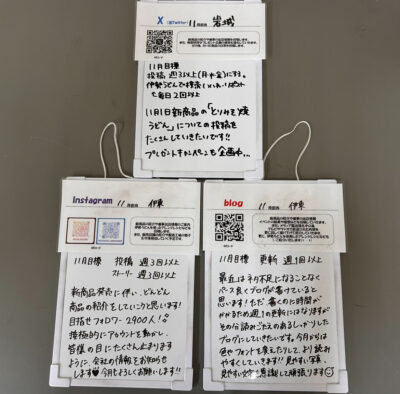 X (旧Twitter) 11月担当 岩城
11月目標
投稿 週3以上(月・水・金)にする。
伊勢うどんで検索し、いいね・リポスト
を毎日2回以上
11月1日新商品の「とりみそ焼
うどん」についての投稿を
たくさんしていきたいです!!
プレゼントキャンペーンも企画中…
Instagram 11月担当 伊東
11月目標 投稿 週3回以上
ストーリー 週3回以上
新商品発売に伴い、どんどん
商品の紹介をしていこうと思います!
目指せフォロワー2900人!
積極的にアカウントを動かし、
皆様の目にたくさん止まります
ように、会社の情報をお知らせ
します 今月もよろしくお願いします!!
blog 11月担当 伊東
11月目標 更新 週1回以上
最近はネタ不足になることなく
ペース良くブログが書けていると
思います!ただ、書くのに時間が
かかるため週1の更新にはなりますが
その分読みごたえのあるしっかりした
ブログにしていきたいです。今月からは
色やフォントを変えたりして、より読み
やすくしていきます!!見やすい写真、
見やすい文字を意識して頑張ります